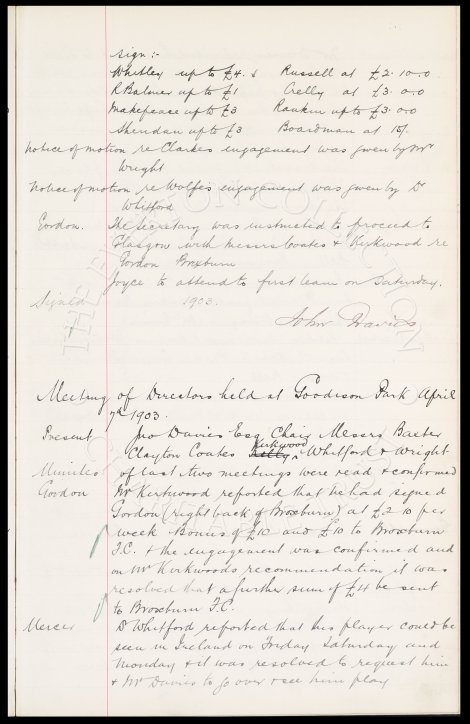 sign :-
Whitley up to £4. &  Russell at £2.10.0
R Balmer up to £1  Crelly at £3.0.0
Makepeace up to £3  Rankin up to £3.0.0
Sheridan up to £3  Boardman at 15/-
Notice of motion re Clarkes engagement was given by Mr
Wright
Notice of motion re Wolfe's engagement was given by Dr
Whitford
Gordon. The Secretary was instructed to proceed to
Glasgow with Messrs Coates & Kirkwood re
Gordon Broxburn
Joyce to attend to first team on Saturday.
Signed 1903.
John Davies
Meeting of Directors held at Goodison Park April
7th 1903.
Present Jno Davies Esq Chair Messrs Baxter
Clayton Coates Kelly Kirkwood Whitford & Wright
Minutes of last two meetings were read & confirmed
Gordon Mr Kirkwood reported that he had signed
Gordon (right back of Broxburn) at £2.10 per
week. Bonus of £10 and £10 to Broxburn
F.C. & the engagement was confirmed and
on Mr Kirkwoods recommendation it was
resolved that a further sum of £4 be sent
to Broxburn F.C.
Mercer Dr Whitford reported that this player could be
seen in Ireland on Friday Saturday and
Monday & it was resolved to request him
& Mr Davies to go over & see him play